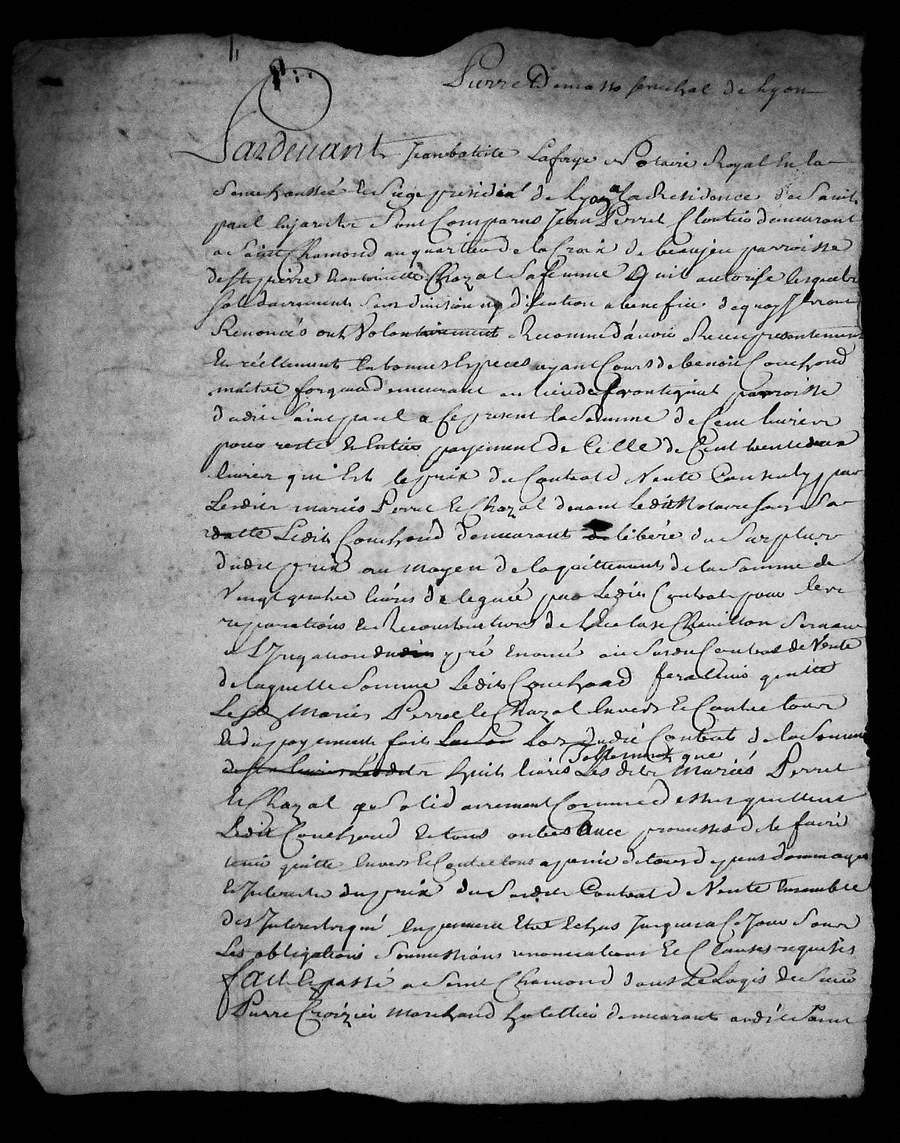 Pierre Demasso senechal de Lyon
Pardevant Jean batiste Laforge Notaire Royal En la
Senechaussée et Siege presidial de Lyon a la Residence de Saint
paul En jarest Sont Comparus Jean Perret Cloutier demeurant
a Saint Chamond au quartier de la Croix de beaujeu parroisse
de st pierre Et antoinette Chazal Sa femme quil autorise lesquels
Solidairement Sans division ny discution a benefice de quoy
Renoncés ont Volontairement Reconnu d'avoir Receu presentement
Et réellement En bonnes Especes ayant Cours de benoit Couchoud
maitre forgeur demeurant au lieu de parroisse
dudit Saint paul a Ce present la Somme de Cent livres
pour reste Et Entier payement de Celle de Cent trente deux
livres qui Est le prix du Contrat de Vente
Lesdits mariés Perret Et Chazal devant ledit Notaire Sa
datte Ledit Couchoud demeurant libéré du Surplus
dudit prix au moyen de la Somme de
Vingt quatre livres deleguée par Ledit Contrat pour les
reparations Et Reconstruction de
a dudit pré Enoncé au Susdit Contrat de Vente
de laquelle Somme Ledit Couchoud fera tenir quitte
Lesdits Mariés Perret Et Chazal Envers Et Contre tous
Et du payement fait Lors dudit Contrat de la Somme
de huit livres tellement que Les dits Mariés Perret
Et Chazal Solidairement Comme dessus quittent
Ledit Couchoud Et tous autres avec promesses de le faire
tenir quitte Envers Et Contre tous a peine de tous depens dommages
Et Interets du prix du Susdit Contrat de Vente Ensemble
des Interets qui En peuvent Etre Echus Jusques a Ce Jour Sous
Les obligations Soumissions renonciations Et Clauses requises
fait Et passé a Saint Chamond dans Le Logis de Sieur
Pierre Croizier Marchand hotellier demeurant audit Saint